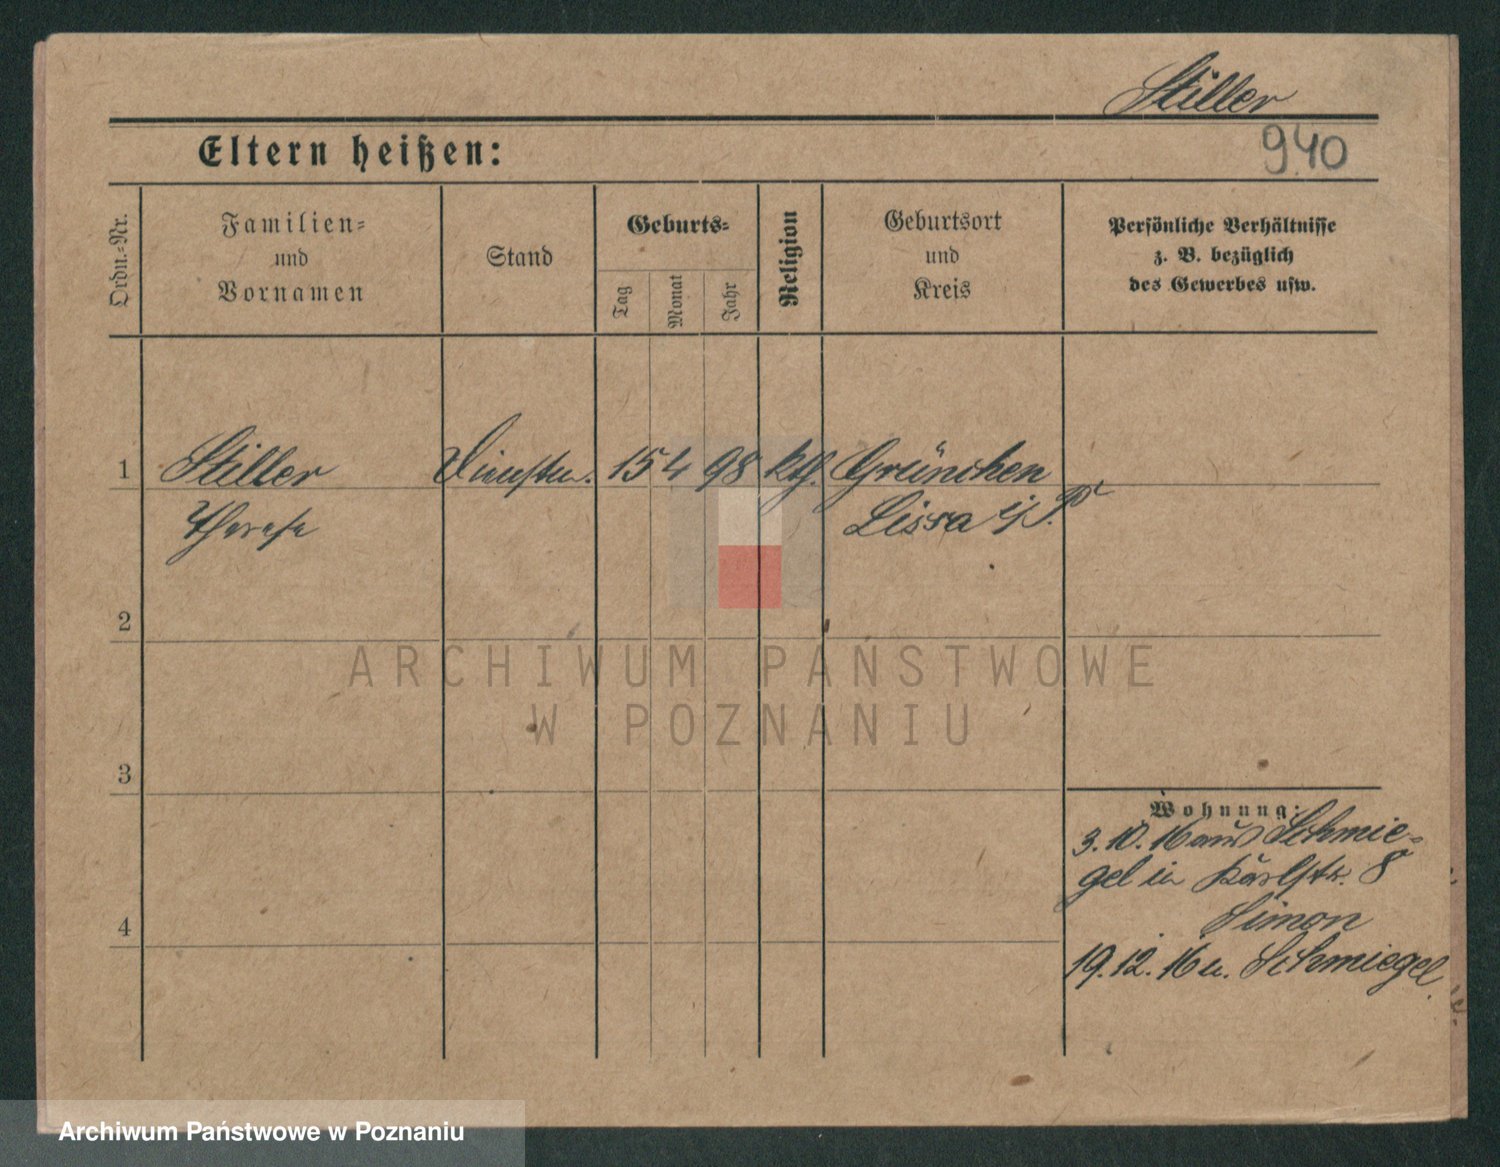 Stiller
Eltern heißen:
940
Ordn.-Nr.
Familien-
und
Vornamen
Stand
Geburts-
Tag
Monat
Jahr
Religion
Geburtsort
und
Kreis
Persönliche Verhältnisse
z. B. bezüglich
des Gewerbes usw.
1 Stiller Dienstm. 15 4 98 kth. Grünchen
Therese Lissa i/P.
2
ARCHIWUM PAŃSTWOWE
W POZNANIU
3
Wohnung:
3.10.16 aus Schmie-
gel in Karlstr. 8
Simon
4
19.12.16 n. Schmiegel.
Archiwum Państwowe w Poznaniu